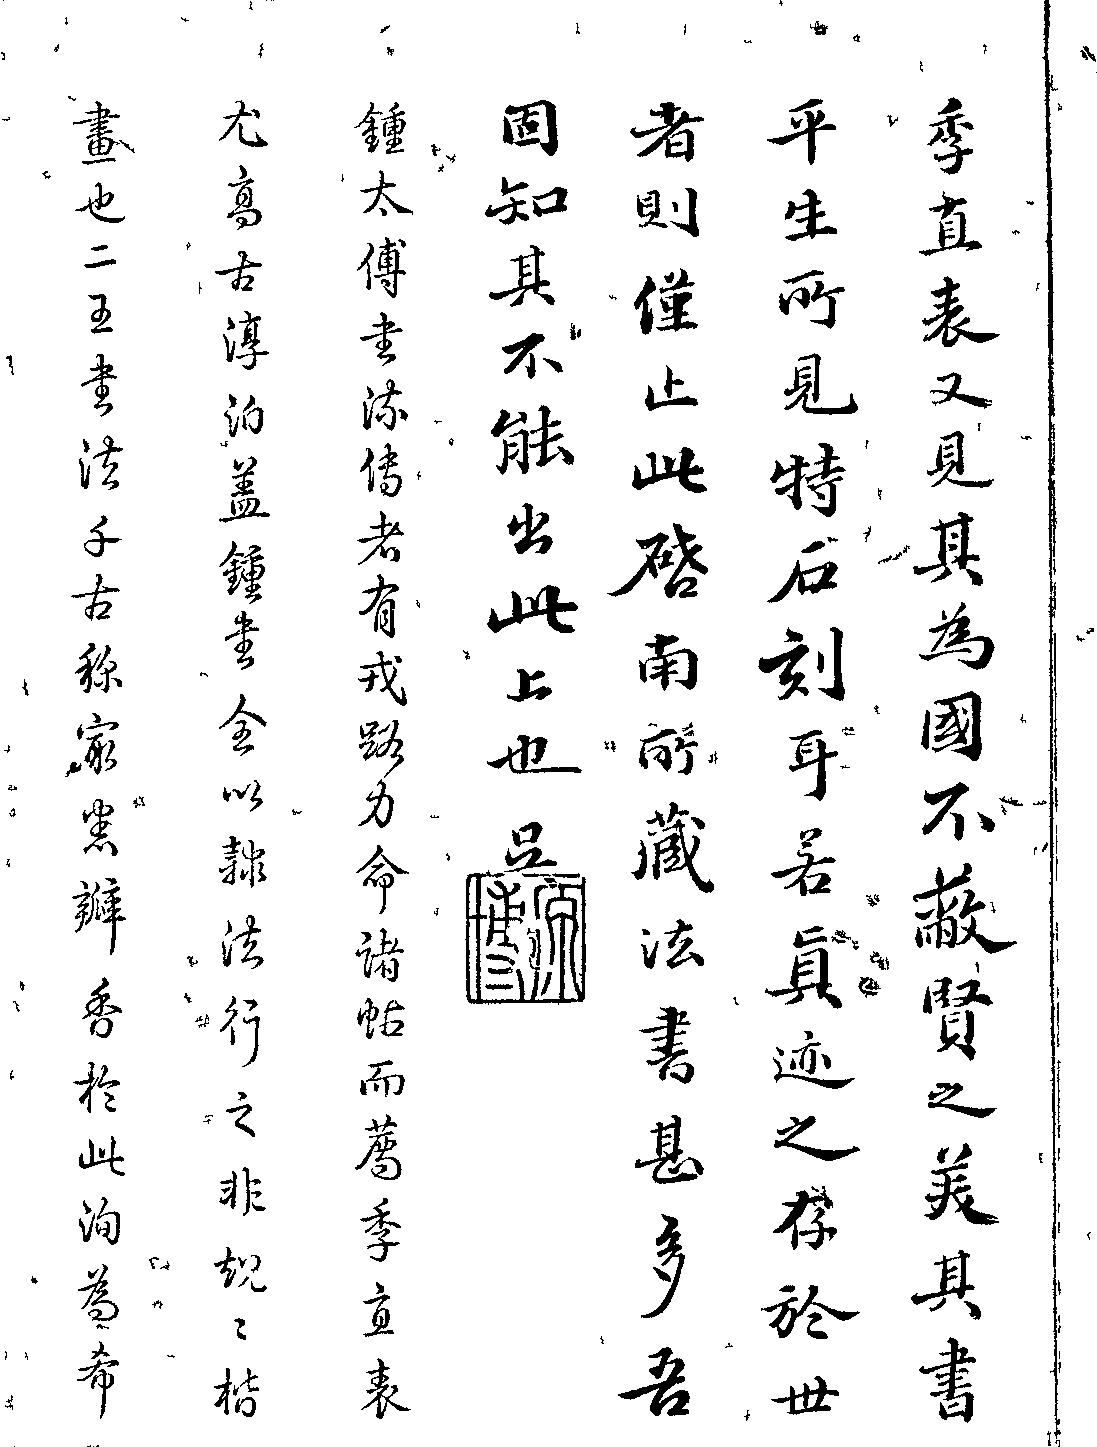 季直表又見其為國不蔽賢之美其書
平生所見特石刻耳若真迹之存於世
者則僅止此啓南所藏法書甚多吾
固知其不能出此上也
原博
鍾太傅書流傳者有戎路力命諸帖而薦季直表
尤高古淳泊蓋鍾書全以隸法行之非規〻楷
畫也二王書法千古稱㝡悉瓣香於此洵為希